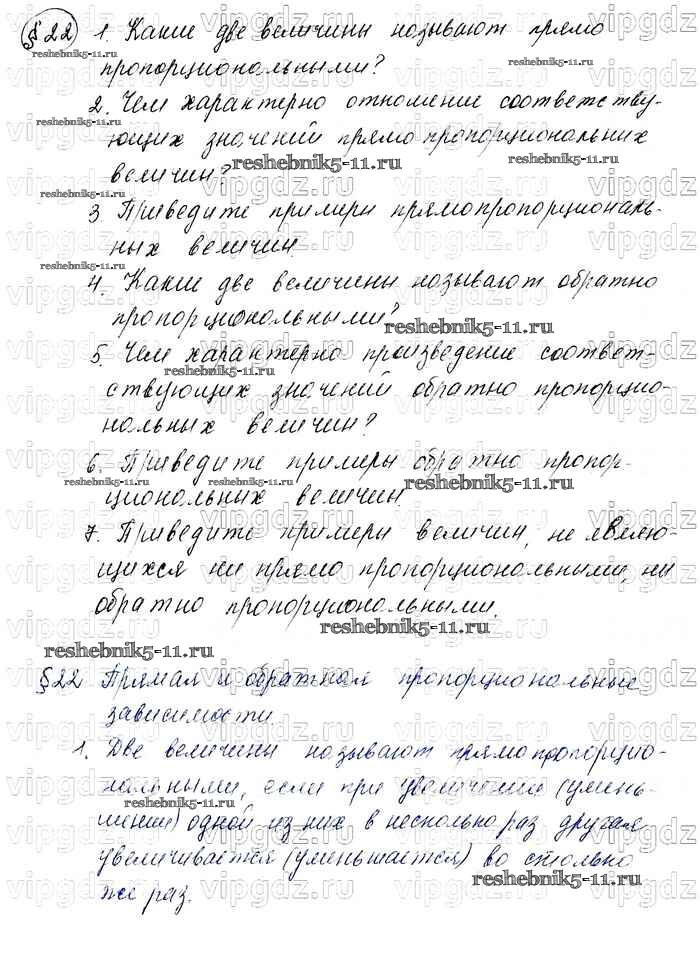 §22 1. Какие две величины называют прямо
пропорциональными?
2. Чем характерно отношение соответству-
ющих значений прямо пропорциональных
величин?
3 Приведите примеры прямо пропорциональ-
ных величин.
4. Какие две величины называют обратно
пропорциональными?
5. Чем характерно произведение соответ-
ствующих значений обратно пропорцио-
нальных величин?
6. Приведите примеры обратно пропор-
циональных величин.
7. Приведите примеры величин, не являю-
щихся ни прямо пропорциональными, ни
обратно пропорциональными.
§22 Прямая и обратная пропорциональные
зависимости
1. Две величины называют прямо пропорцио-
нальными, если при увеличении (умень-
шении) одной из них в несколько раз другая
увеличивается (уменьшается) во столько
же раз.
reshebnik5-11.ru
vipgdz.ru